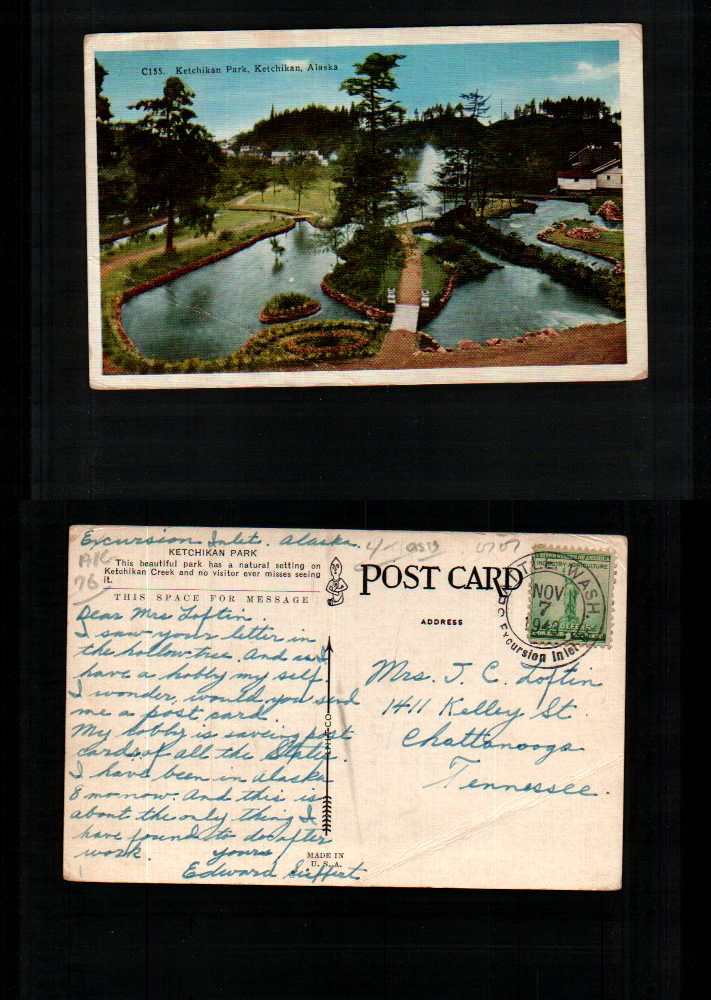 C155. Ketchikan Park, Ketchikan, Alaska
Excursion Inlet. Alaska.
KETCHIKAN PARK
This beautiful park has a natural setting on
Ketchikan Creek and no visitor ever misses seeing
it.
THIS SPACE FOR MESSAGE
76
Dear Mrs Loftin.
I saw your letter in
the hollow tree. And as I
have a hobby my self.
I wonder, would you send
me a post card.
My hobby is saveing post
cards, of all the States.
I have been in Alaska
8 mo now. And this is
about the only thing I
have found to do after
work. yours,
Edward Sieffert
POST CARD
ADDRESS
Mrs. J. C. Loftin
1411 Kelley St.
Chattanooga
Tennessee.
MADE IN
U. S. A.
SEATTLE, WASH.
NOV
7
Excursion Inlet
INDUSTRY AGRICULTURE
DEFENSE